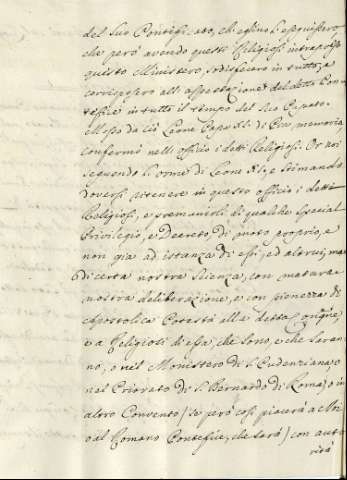 del suo Pontificato, ch'eglino l'eseguissero,
che però avendo questi Religiosi intrapreso
questo Ministero, sodisfecero in tutto, e
corrisposero all'aspettazione del detto Pon-
tefice in tutto il tempo del suo Papato.
Mosso da ciò Leone Papa XI. di Pia memoria,
confermò nell'officio i detti Religiosi. Or noi
seguendo l'orme di Leone XI, e stimando
doversi ritenere in questo officio i detti
Religiosi, e premiarli di qualche special
Privilegio, e Decreto di moto proprio, e
non già ad istanza di essi, ed altrui, ma
di certa nostra scienza, con matura
nostra deliberazione, e con pienezza di
Apostolica Potestà alla detta
e a Religiosi di essa, che sono, e che saran-
no, o nel Monistero di S. Pudenziana, o
nel Priorato di S. Bernardo di Roma, o in
altro Convento (se però così piacerà a Noi
o al Romano Pontefice, che sarà) con auto
rità